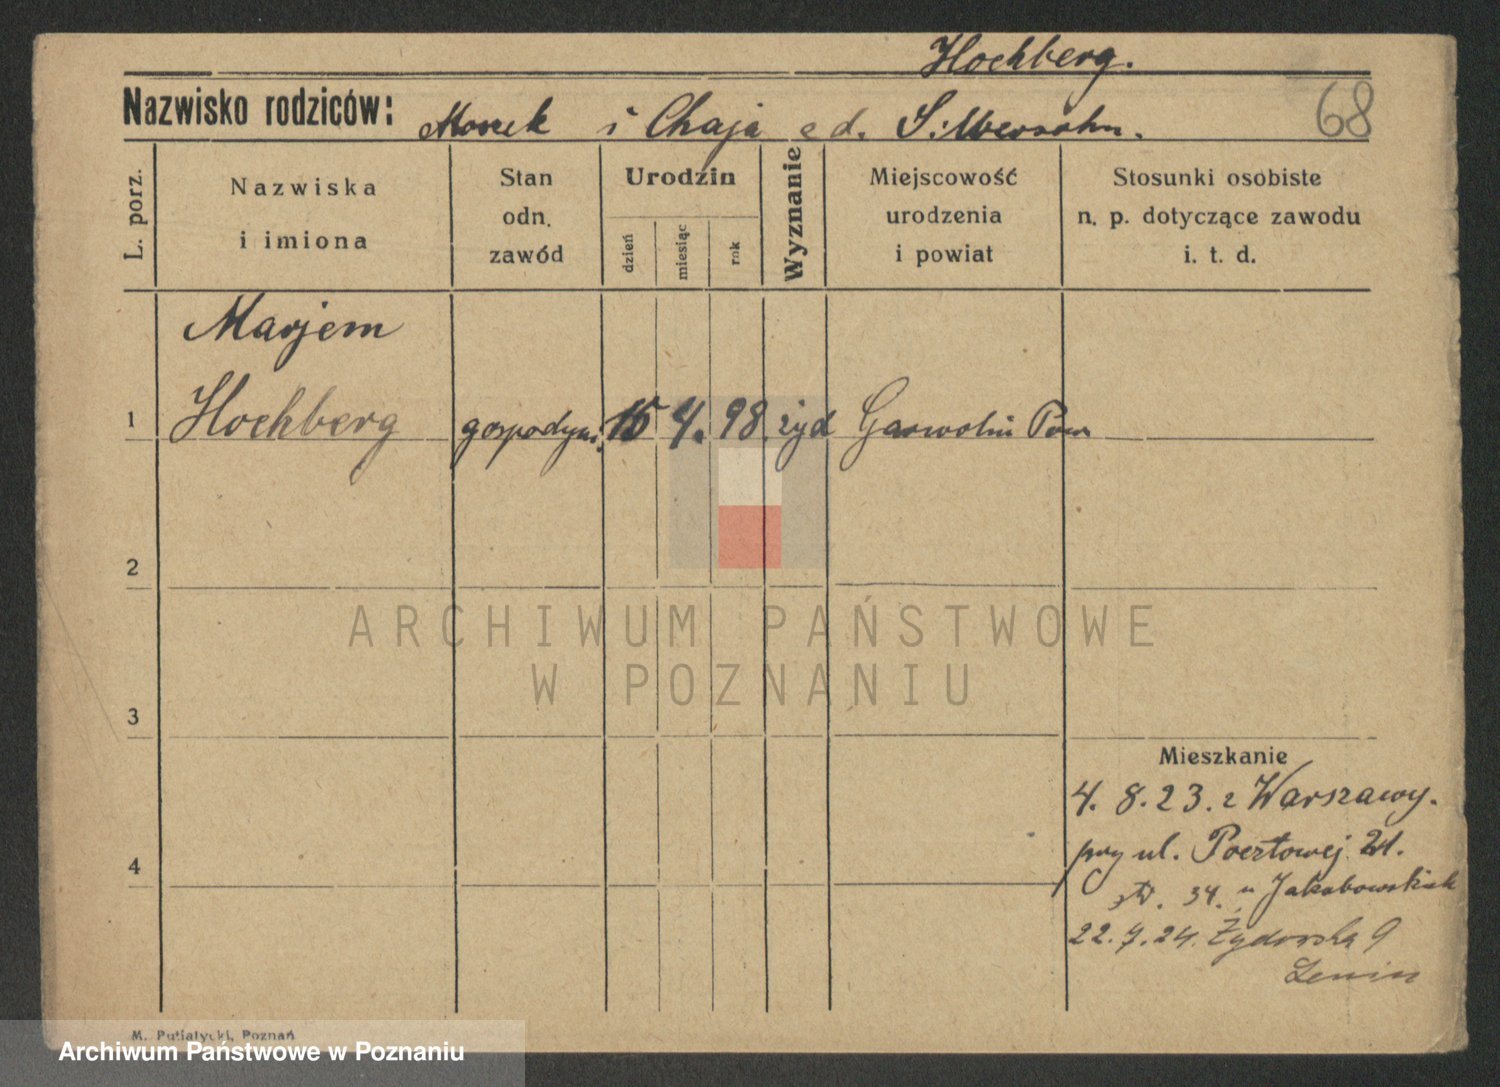 Hochberg.
Nazwisko rodziców: Moszek i Chaja Silbersohn.
68
L. porz.
Nazwiska
i imiona
Stan
odn.
zawód
Urodzin
dzień
miesiąc
rok
Wyznanie
Miejscowość
urodzenia
i powiat
Stosunki osobiste
n. p. dotyczące zawodu
i. t. d.
Marjem
1 Hochberg gospodyni 15 4. 98. żyd Garwolin Pow
2
3
4
ARCHIWUM PAŃSTWOWE
W POZNANIU
Mieszkanie
4. 8. 23. z Warszawy.
przy ul. Pocztowej 21.
34. u Jakubowskich
22. 7. 24. Żydowska 9
Lewin
M. Putiatycki, Poznań
Archiwum Państwowe w Poznaniu